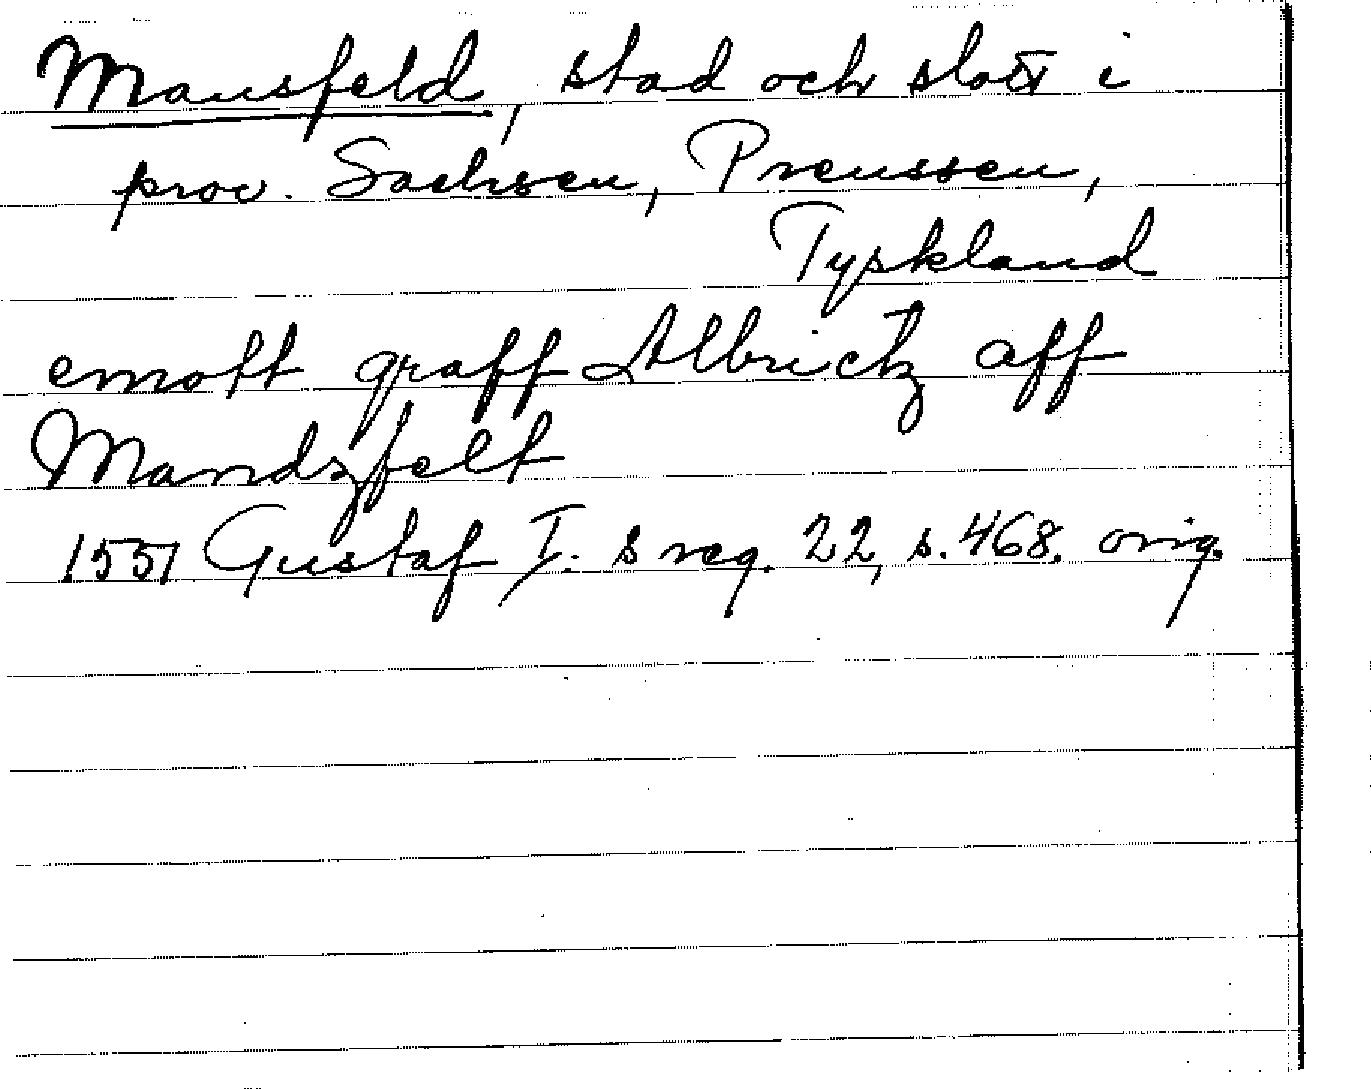 Mansfeld, stad och slott i
prov. Sachsen, Preussen,
Tyskland
emott graff Albrictz aff
Mandzfelt
1551 Gustaf I. s reg. 22, s. 468. orig.